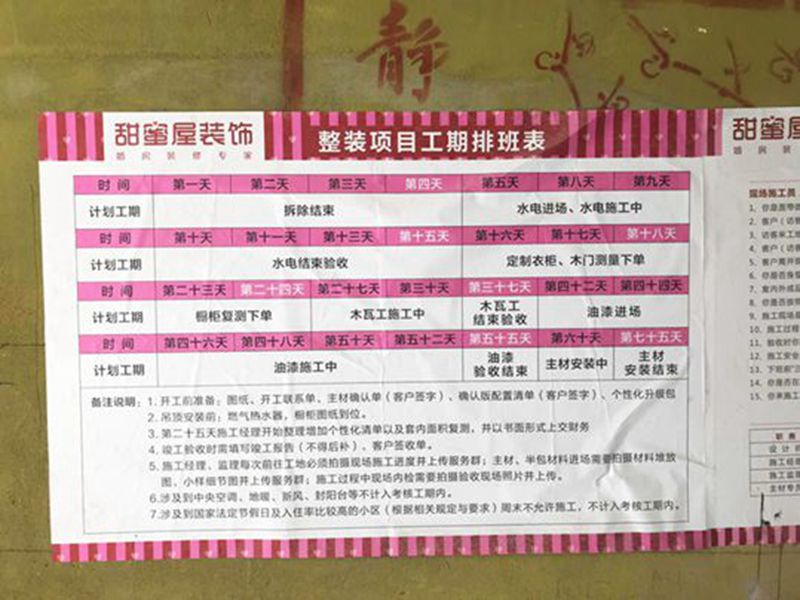 静
甜蜜屋装饰
婚房装修专家
整装项目工期排班表
时间 第一天 第二天 第三天 第四天 第五天 第八天 第九天
计划工期 拆除结束 水电进场、水电施工中
时间 第十天 第十一天 第十三天 第十五天 第十六天 第十七天 第十八天
计划工期 水电结束验收 定制衣柜、木门测量下单
时间 第二十三天 第二十四天 第二十七天 第三十天 第三十七天 第四十二天 第四十四天
计划工期 橱柜复测下单 木瓦工施工中 木瓦工结束验收 油漆进场
时间 第四十六天 第四十八天 第五十天 第五十二天 第五十五天 第六十天 第七十五天
计划工期 油漆施工中 油漆验收结束 主材安装中 主材安装结束
备注说明：1. 开工前准备：图纸、开工联系单、主材确认单（客户签字）、确认版配置清单（客户签字）、个性化升级包
2. 吊顶安装前：燃气热水器，橱柜图纸到位。
3. 第二十五天施工经理开始整理增加个性化清单以及套内面积复测，并以书面形式上交财务
4. 竣工验收时需填写竣工报告（不得后补）、客户签收单。
5. 施工经理、监理每次前往工地必须拍摄现场施工进度并上传服务群；主材、半包材料进场需要拍摄材料堆放
图，小样细节图并上传服务群；施工过程中现场内检需要拍摄验收现场照片并上传。
6. 涉及到中央空调、地暖、新风、封阳台等不计入考核工期内。
7. 涉及到国家法定节假日及入住率比较高的小区（根据相关规定与要求）周末不允许施工，不计入考核工期内。
甜蜜屋
婚房装
现场施工员